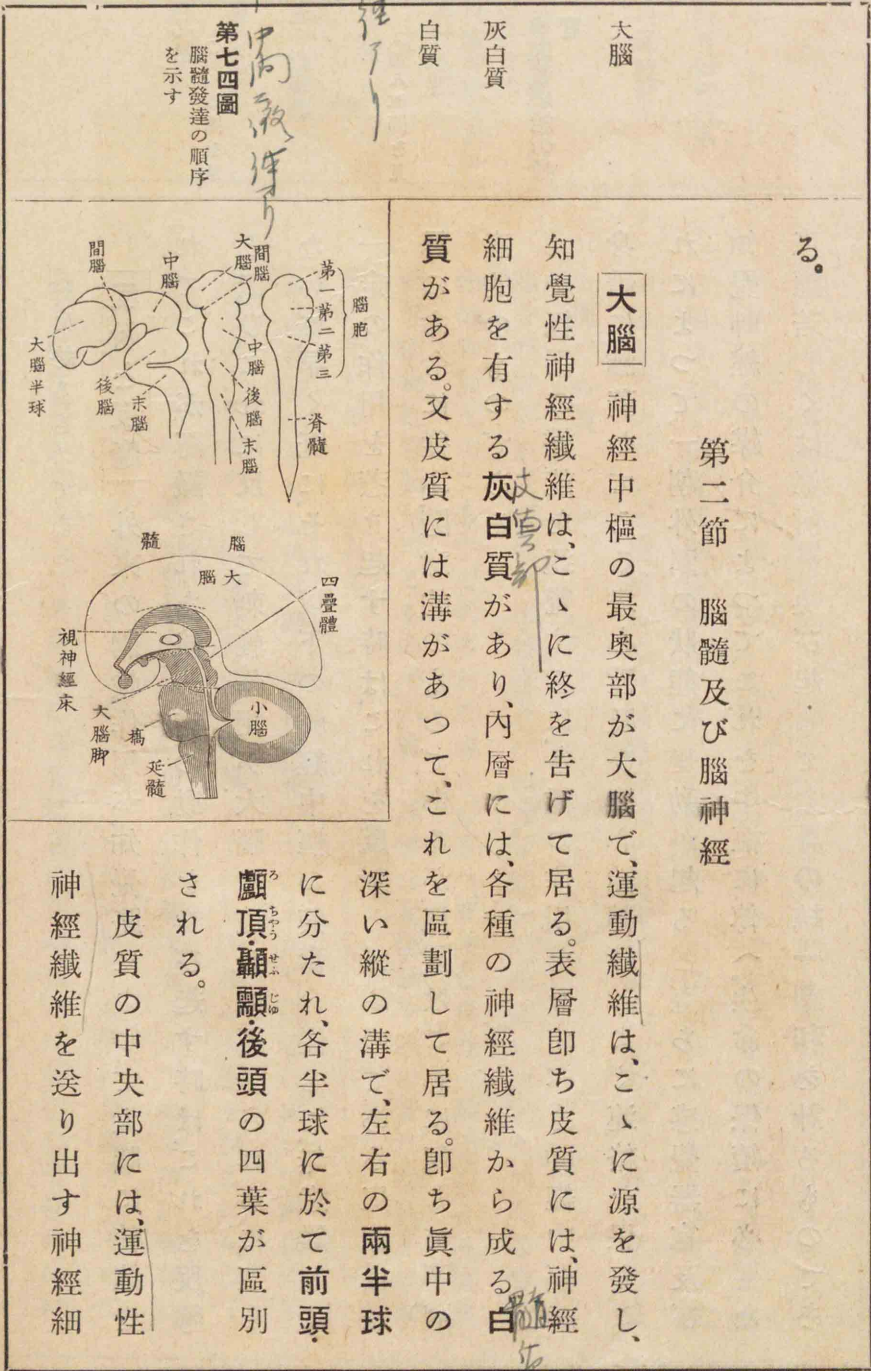 大腦
灰白質
白質
第七四圖
腦髓發達の順序
を示す
る。
第二節　腦髓及び腦神經
大腦　神經中樞の最奧部が大腦で、運動纖維は、こゝに源を發し、
知覺性神經纖維は、こゝに終を告げて居る。表層卽ち皮質には、神經
細胞を有する灰白質があり、內層には、各種の神經纖維から成る白
質がある。又皮質には溝があつて、これを區劃して居る。卽ち眞中の
深い縱の溝で、左右の兩半球
に分たれ、各半球に於て前頭・
顱頂・顳顬・後頭の四葉が區別
ろ ちやう せふ じゆ
される。
皮質の中央部には、運動性
神經纖維を送り出す神經細
腦胞
第一
第二
第三
脊髓
間腦
大腦
中腦
後腦
末腦
中腦
間腦
大腦半球
後腦
末腦
腦髓
大腦
四疊體
視神經床
大腦脚
橋
延髓
小腦